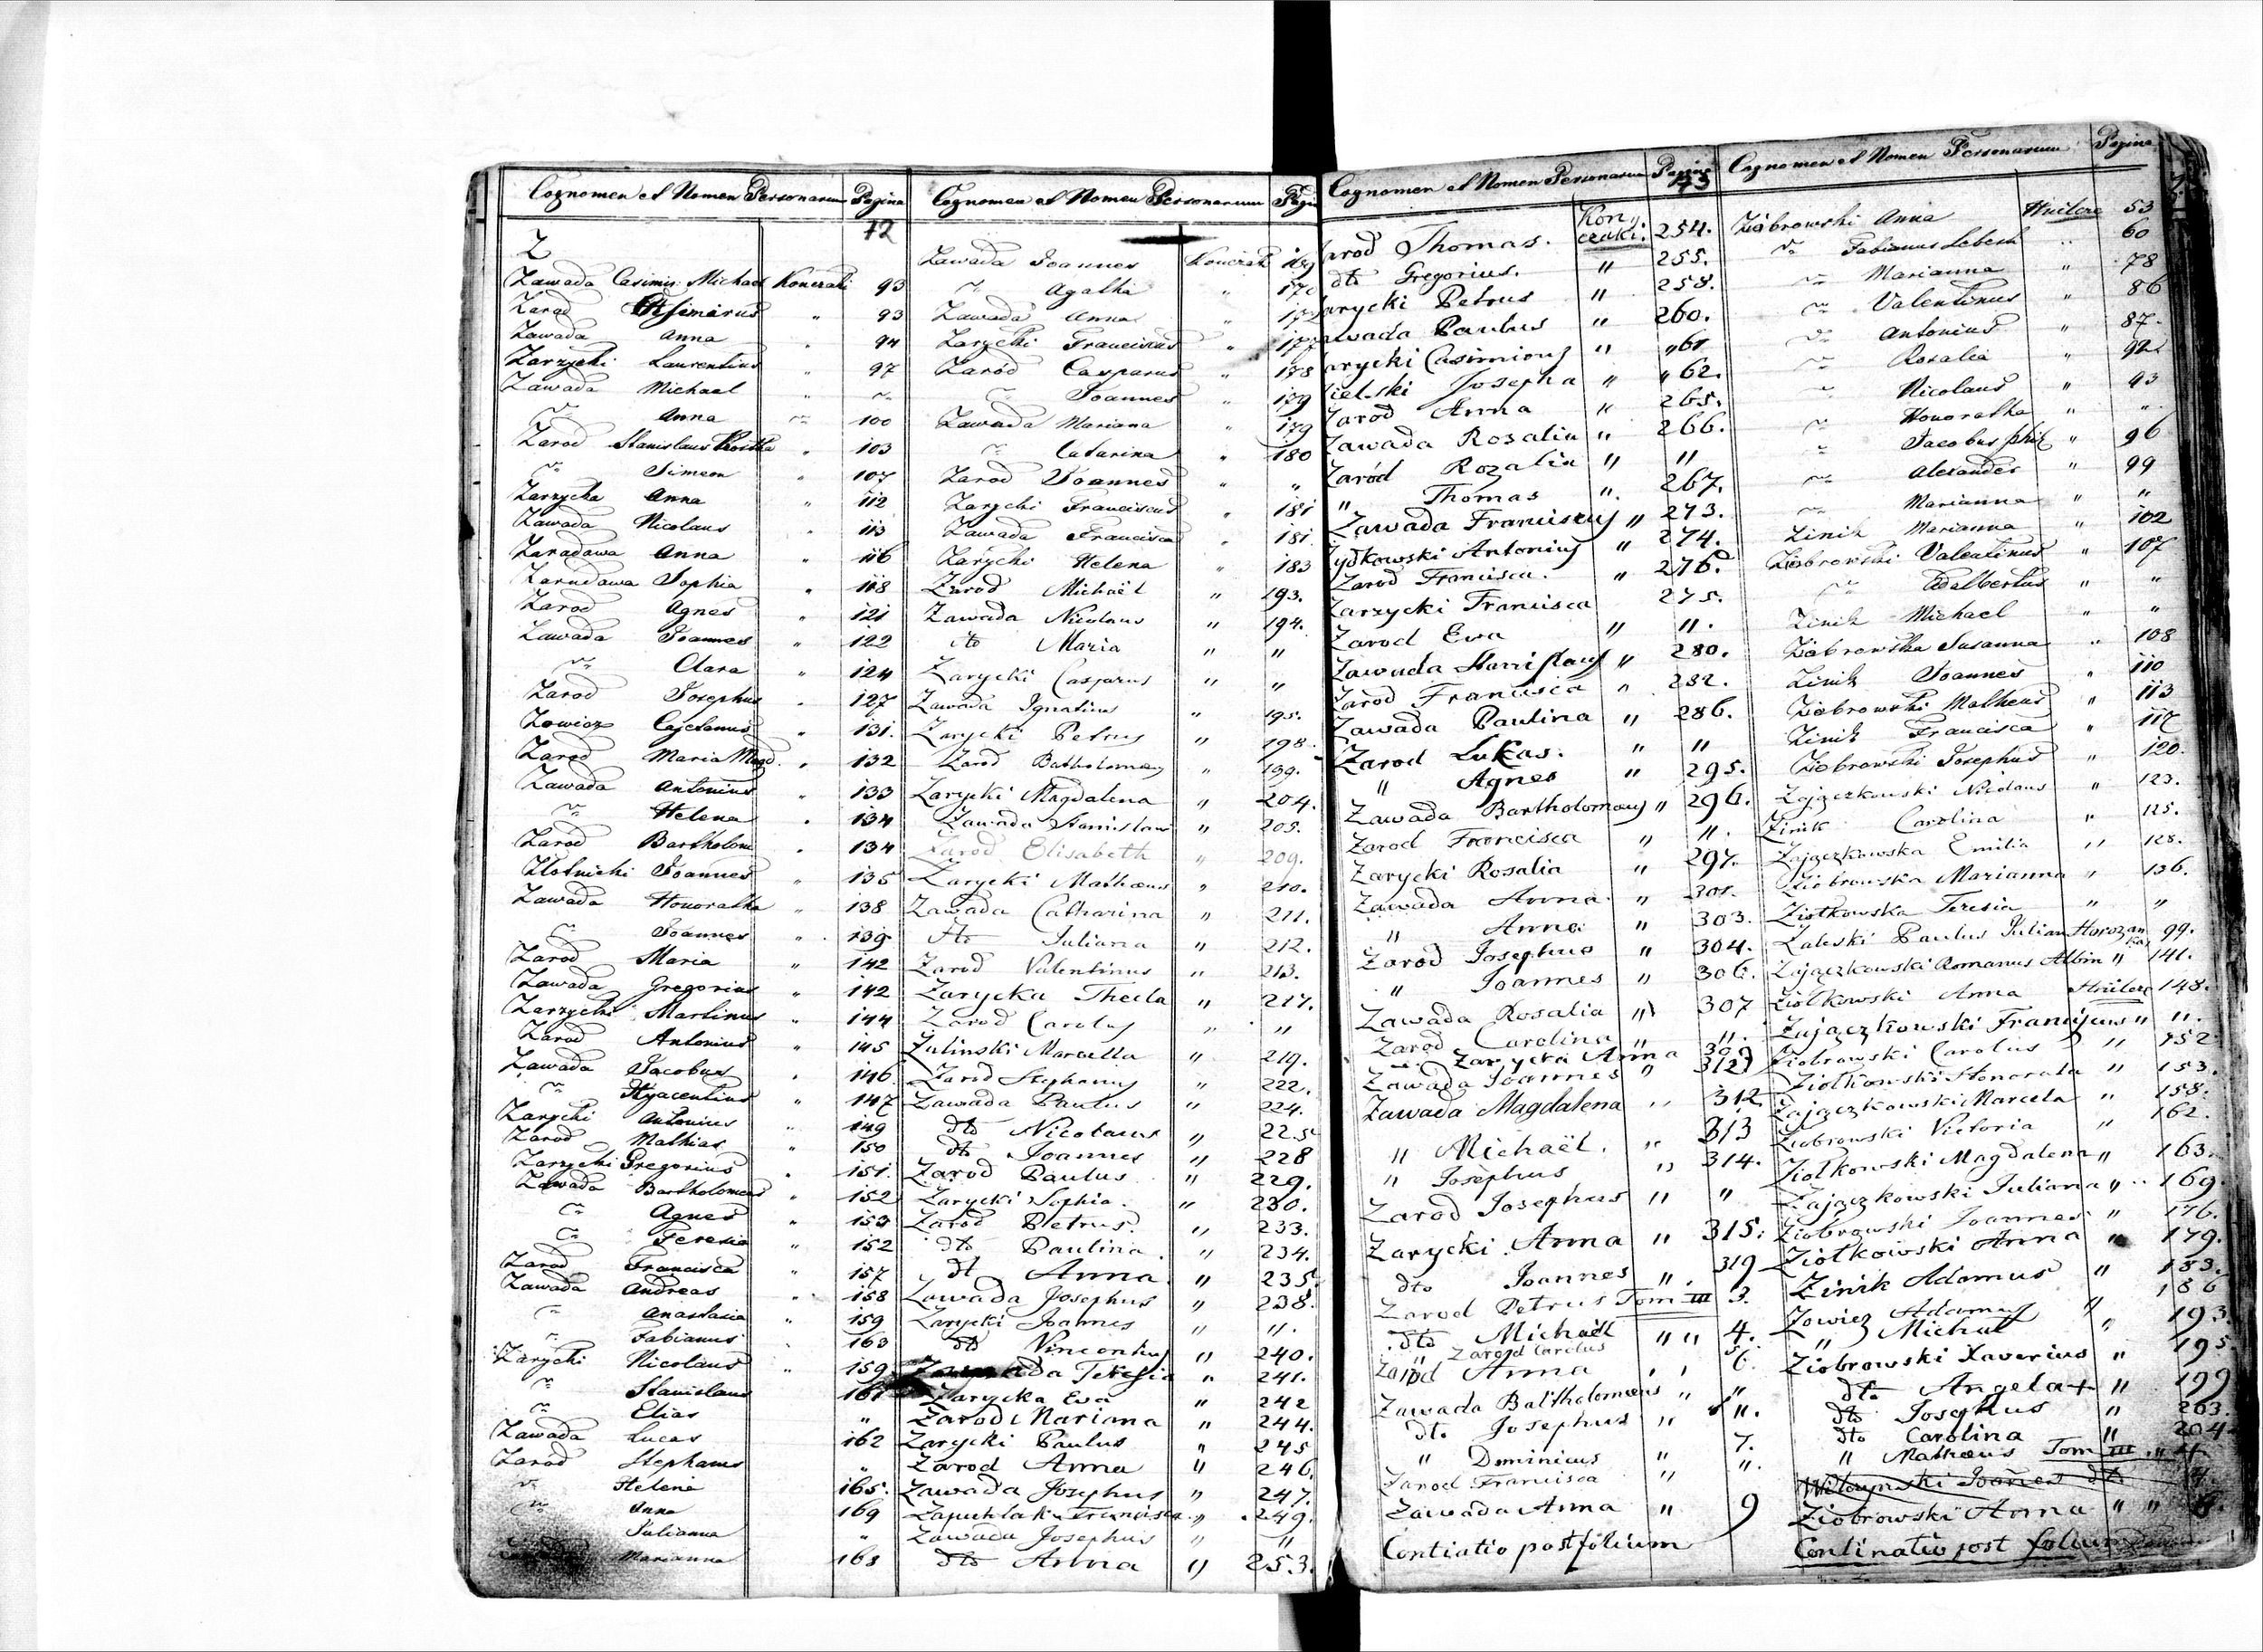 Cognomen et Nomen Personarum Pagina
72
Z
Zawada Casimir. Michael Konczaki 93
Zarod Casimirus " 93
Zawada Anna " 94
Zarzycki Laurentius " 97
Zawada Michael " "
dto Anna " 100
Zarod Stanislaus Kostka " 103
dto Simeon " 107
Zarzycka Anna " 112
Zawada Nicolaus " 113
Zarodowa Anna " 116
Zarodowa Sophia " 118
Zarod Agnes " 121
Zawada Joannes " 122
dto Clara " 124
Zarod Josephus " 127
Zowicz Cajetanus " 131.
Zarod Maria Magd. " 132
Zawada Antonius " 133
dto Helena " 134
Zarod Bartholom " 134
Zlotnicki Joannes " 135
Zawada Honoratha " 138
dto Joannes " 139
Zarod Maria " 142
Zawada Gregorius " 142
Zarzycki Martinus " 144
Zarod Antonius " 145
Zawada Jacobus " 146
dto Hyacentius " 147
Zarycki Antonius " 149
Zarod Mathias " 150
Zarzycki Gregorius " 151.
Zawada Bartholomeus " 152
dto Agnes " 153
dto Teresia " 152
Zarod Francisca " 157
Zawada Andreas " 158
dto Anastasia " 159
dto Fabianus 163
Zarycki Nicolaus " 159
dto Stanislaus 161
dto Elias "
Zawada Lucas 162
Zarod Stephanus "
dto Helena 165.
dto Anna 169
Julianna "
Marianna 168
Cognomen et Nomen Personarum Pagin
Zawada Joannes Konczak 169
dto Agatha " 170
Zawada Anna " 17
Zarycki Franciscus " 177
Zarod Casparus " 178
dto Joannes " 179
Zawada Mariana " 179
dto Catarina " 180
Zarod Joannes " "
Zarycki Franciscus " 181
Zawada Francisca " 181
Zarycki Helena " 183
Zarod Michaël " 193.
Zawada Nicolaus " 194.
dto Maria " "
Zarycki Casparus " "
Zawada Ignatius " 195.
Zarycki Petrus " 198.
Zarod Batholomeus " 199.
Zarycki Magdalena " 204.
Zawada Stanislaus " 205.
Zarod Elisabeth " 209.
Zarycki Matheus " 210.
Zawada Catharina " 211.
dto Juliana " 212.
Zarod Valentinus " 213.
Zarycka Thecla " 217.
Zarod Carolus " "
Zulinski Marcella " 219.
Zarod Stephanus " 222.
Zawada Paulus " 224.
dto Nicolaus " 225
dto Joannes " 228
Zarod Paulus " 229.
Zarycki Sophia " 230.
Zarod Petrus " 233.
dto Paulina " 234.
dt Anna " 235
Zawada Josephus " 238.
Zarycki Joannes " ".
dto Vincentius " 240.
Teresia " 241.
Zarycka Eva " 242
Zarod Mariana " 244.
Zarycki Paulus " 245
Zarod Anna " 246.
Zawada Josephus " 247.
Francisca " 249.
Zawada Josephus " "
dto Anna " 253.
Cognomen et Nomen Personarum Pagina
73
arod Thomas. Konczaki. 254.
dto Gregorius. " 255.
Zarycki Petrus " 258.
awada Paulus " 260.
arycki Casimirus " "61
ielski Josepha " "62.
Zarod Anna " 265.
Zawada Rosalia " 266.
Zaród Rozalia " "
" Thomas " 267.
Zawada Franciscus " 273.
Zydkowski Antonius " 274.
Zarod Francisca. " 276.
Zarzycki Francisca 275.
Zarod Ewa " ".
Zawada Stanislaus " 280.
Zarod Francisca " 282.
Zawada Paulina " 286.
Zarod Lukas. " "
" Agnes " 295.
Zawada Bartholomeus " 296.
Zarod Francisca " ".
Zarycki Rosalia " 297.
Zawada Anna " 301.
" Anna " 303.
Zarod Josephus " 304.
" Joannes " 306.
Zawada Rosalia " 307
Zarod Carolina " ".
Zarycka Anna 309
Zawada Joannes " 312
Zawada Magdalena " 312
" Michaël. " 313
" Josephus " 314.
Zarod Josephus " "
Zarycki Anna " 315.
dto Joannes " 319
Zarod Petrus Tom III 3.
dto Michaël " " 4.
Zarod Carolus 5.
Zarod Anna " " 6.
Zawada Baltholomeus " "
dto Josephus " ".
" Dominicus " 7.
Zarod Francisca " ".
Zawada Anna " 9
Contiatio post folium
Cognomen et Nomen Personarum Pagina
Ziobrowski Anna Huilcze 53
dto Fabianus Sebesh " 60
dto Marianna " 78
dto Valentinus " 86
dto Antonius " 87.
dto Rosalia " 92.
dto Nicolaus " 93
dto Honoratha " "
dto Jacobus phil " 96
dto Alexander " 99
dto Marianna " "
Zinik Marianna " 102
Ziobrowski Valentinus " 107
dto Adalbertus " "
Zinik Michael "
Ziobrowska Susanna " 108
Zinik Joannes " 110
Ziobrowski Matheus " 113
Zinik Francisca " 117
Ziobrowski Josephus " 120.
Zajączkowski Nicolaus " 123.
Zinik Carolina " 125.
Zajączkowska Emilia " 128.
Ziobrowska Marianna " 136.
Ziołkowska Teresia " "
Zaleski Paulus Julian Horozanka 99.
Zajączkowski Romanus Albin " 141.
Ziołkowski Anna Huilcze 148.
Zajączkowski Franciscus " ".
Ziobrowski Carolus " 152.
Ziołkowski Honorata " 153.
Zajączkowski Marcela " 158.
Ziobrowski Victoria " 162.
Ziołkowski Magdalena " 163.
Zajączkowski Juliana " 169.
Ziobrowski Joannes " 176.
Ziołkowski Anna " 179.
Zinik Adamus " 183.
Zowicz Adamus " 186
" Michal " 193.
Ziobrowski Xaverius " 195.
dto Angela + " 199
dto Josephus " 203.
dto Carolina " 204
" Matheus Tom III " 4.
Joannes dto
Ziobrowski Anna " " 8.
Continatio post folium